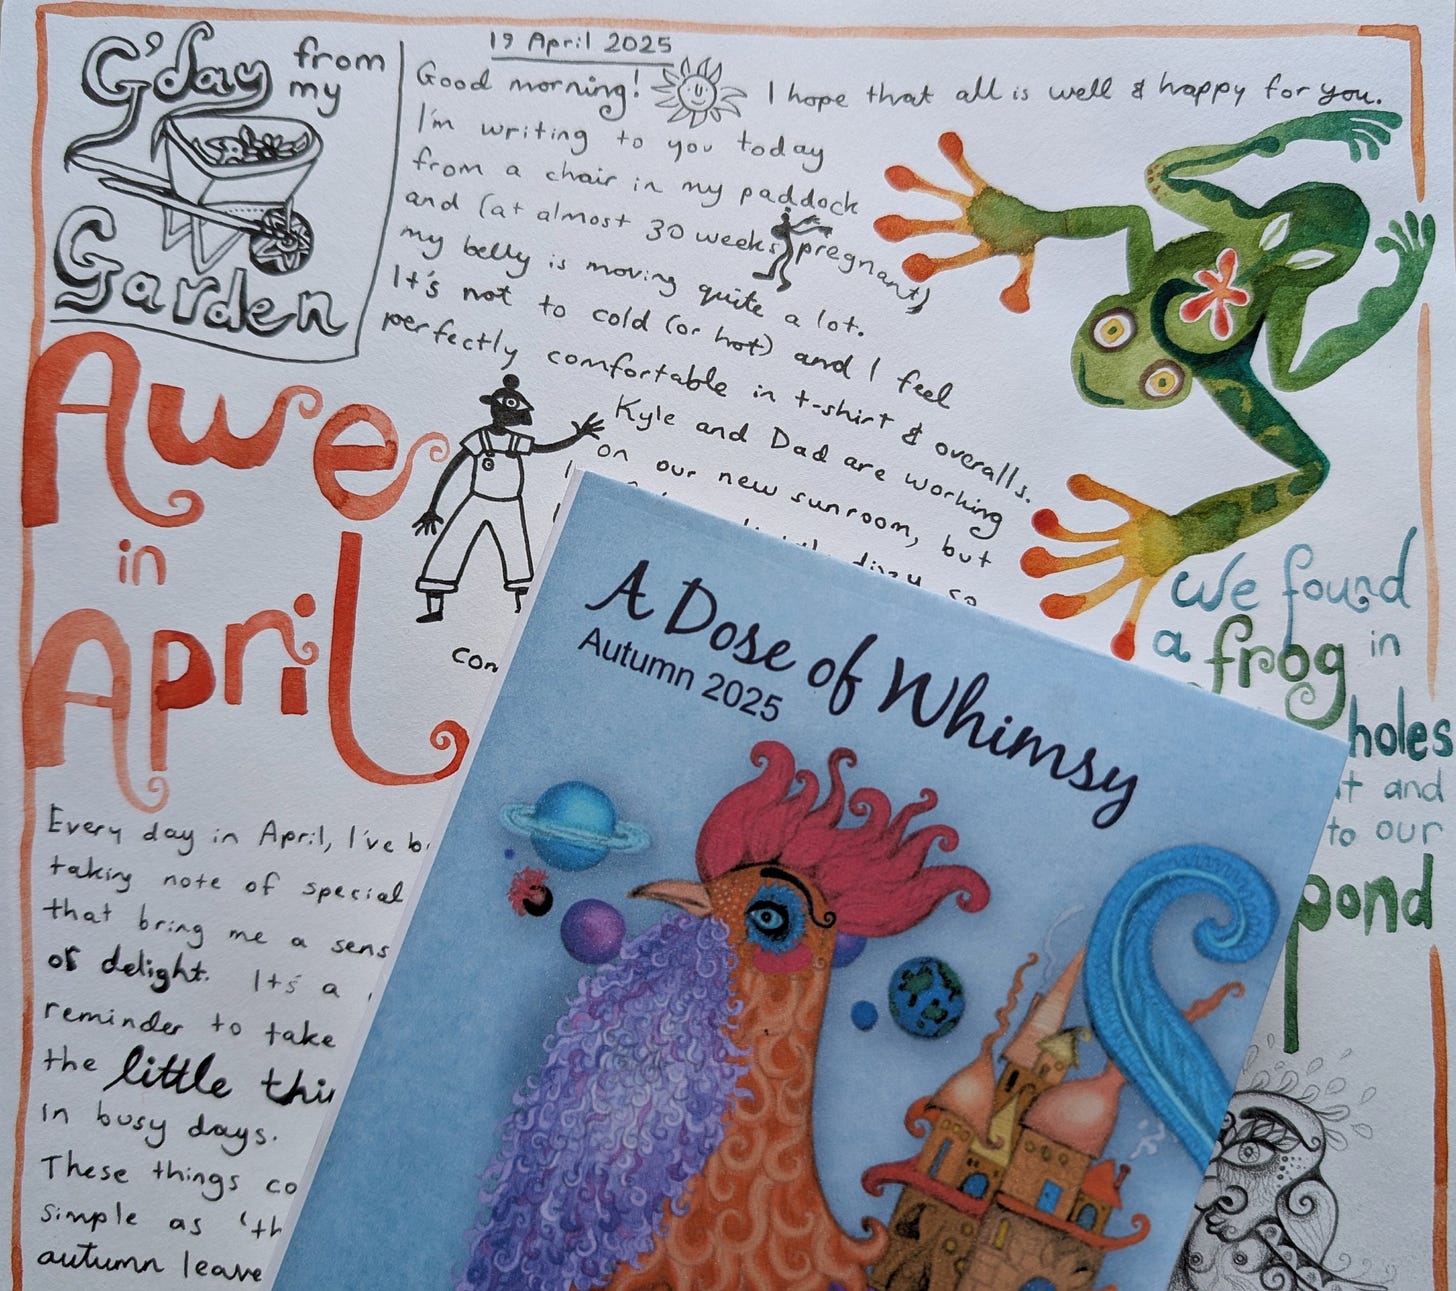 G'day from
my
Garden
19 April 2025
Good morning! I hope that all is well & happy for you.
I'm writing to you today
from a chair in my paddock
and (at almost 30 weeks pregnant)
my belly is moving quite a lot.
It's not to cold (or hot) and I feel
perfectly comfortable in t-shirt & overalls.
Kyle and Dad are working
on our new sunroom, but
so
con
Awe
in
April
Every day in April, I've b
taking note of special
that bring me a sens
of delight. It's a
reminder to take
the little thin
in busy days.
These things co
simple as 'th
autumn leave
We found
a frog in
holes
it and
to our
pond
A Dose of Whimsy
Autumn 2025